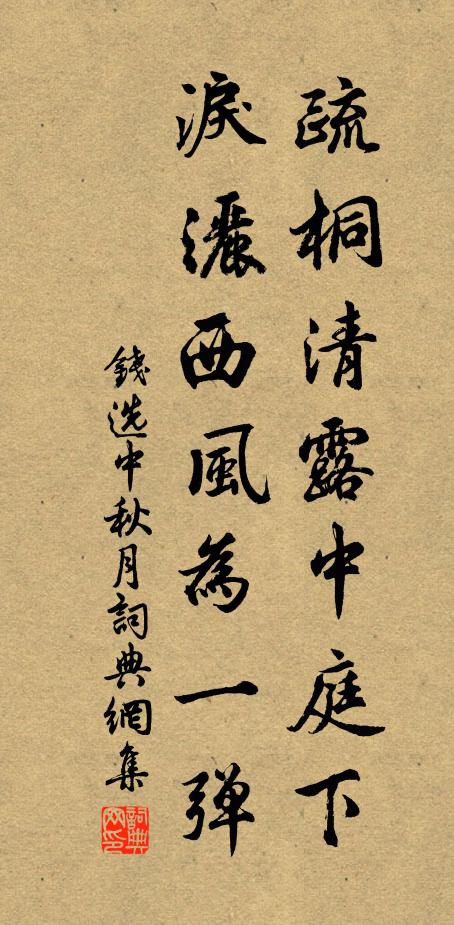 疏桐清露中庭下
淚灑西風為一弹
錢选中秋月詞典網集
詞典网印